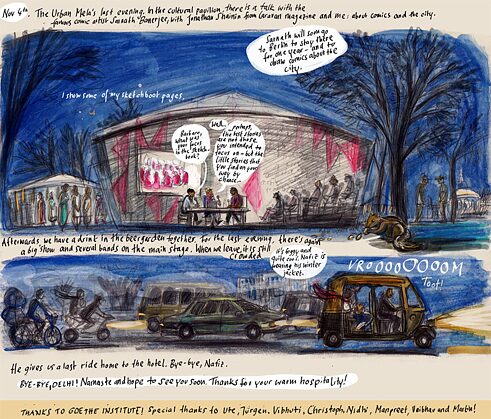 Nov 4th. The Urban Mela's last evening. In the cultural pavilion, there is a talk with the
famous comic artist Sarnath Banerjee, with Jonathan Shainin from Caravan magazine and me: about comics and the city.
Sarnath will soon go
to Berlin to stay there
for one year - and to
draw comics about the
city.
I show some of my sketchbook pages.
Barbara,
what was
your focus
in the sketch-
book?
Well...
perhaps,
the best stories
are not those
you intended to
focus on - but the
little stories that
you find on your
way by
chance...
Afterwards, we have a drink in the beergarden together. For the last evening, there's again
a big show and several bands on the main stage. When we leave, it is still
crowded
It's foggy and
quite cool. Nafiz is
wearing his winter
jacket.
VROOOOOOOOM
Toot!
He gives us a last ride home to the hotel. Bye-bye, Nafiz.
BYE-BYE, DELHI! Namaste and hope to see you soon. Thanks for your warm hospitality!
THANKS TO GOETHE INSTITUTE! Special thanks to Ute, Jürgen, Vibhuti, Christoph, Nidhi, Manpreet, Vaibhav and Mathu!